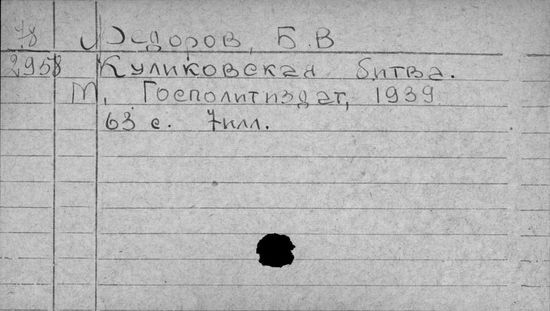 78 Федоров, Б.В
2958 Куликовская битва.
М, Госполитиздат, 1939
63 с. 7илл.